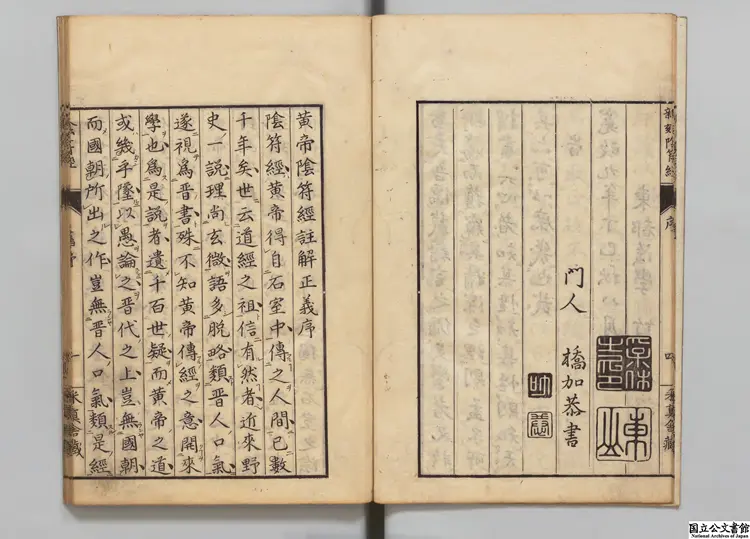 新刻陰符經
序
四
門人
橋加恭書
東
永真舍藏
黄帝陰符經註解正義序
陰符經黄帝得自石室中傳之人間已數
千年矣世云道經之祖信有然者近來野
史一說理尚玄微語多脱略類晋人口氣
遂視爲晋書殊不知黄帝傳經之意開來
學也爲是說者遺十百世疑而黄帝之道
或幾乎隱以愚論之晋代之上豈無國朝
而國朝所出之作豈無晋人口氣類是經
永真舍藏
国立公文書館
National Archives of Japan